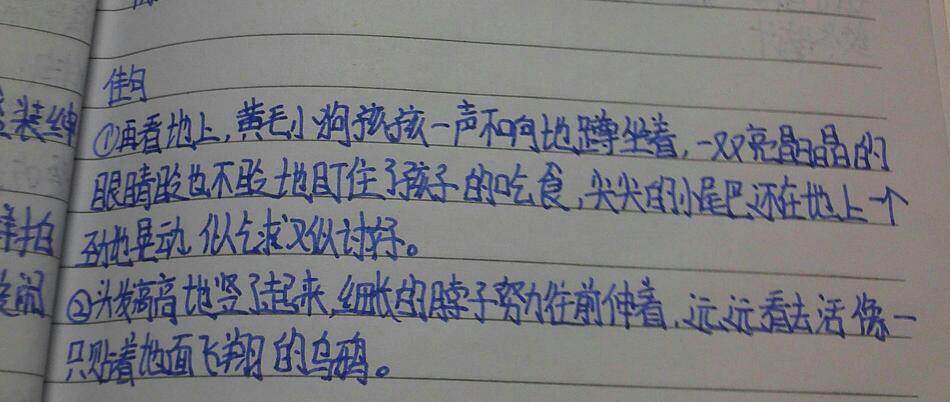 佳句
装绅
①再看地上,黄毛小狗孩孩一声不响地蹲坐着,一双亮晶晶的
眼睛眨也不眨地盯住了孩子的吃食,尖尖的小尾巴还在地上一个
拍
劲地晃动,似乞求又似讨好。
闹
②头发高高地竖了起来,细长的脖子努力往前伸着,远远看去活像一
只贴着地面飞翔的乌鸦。